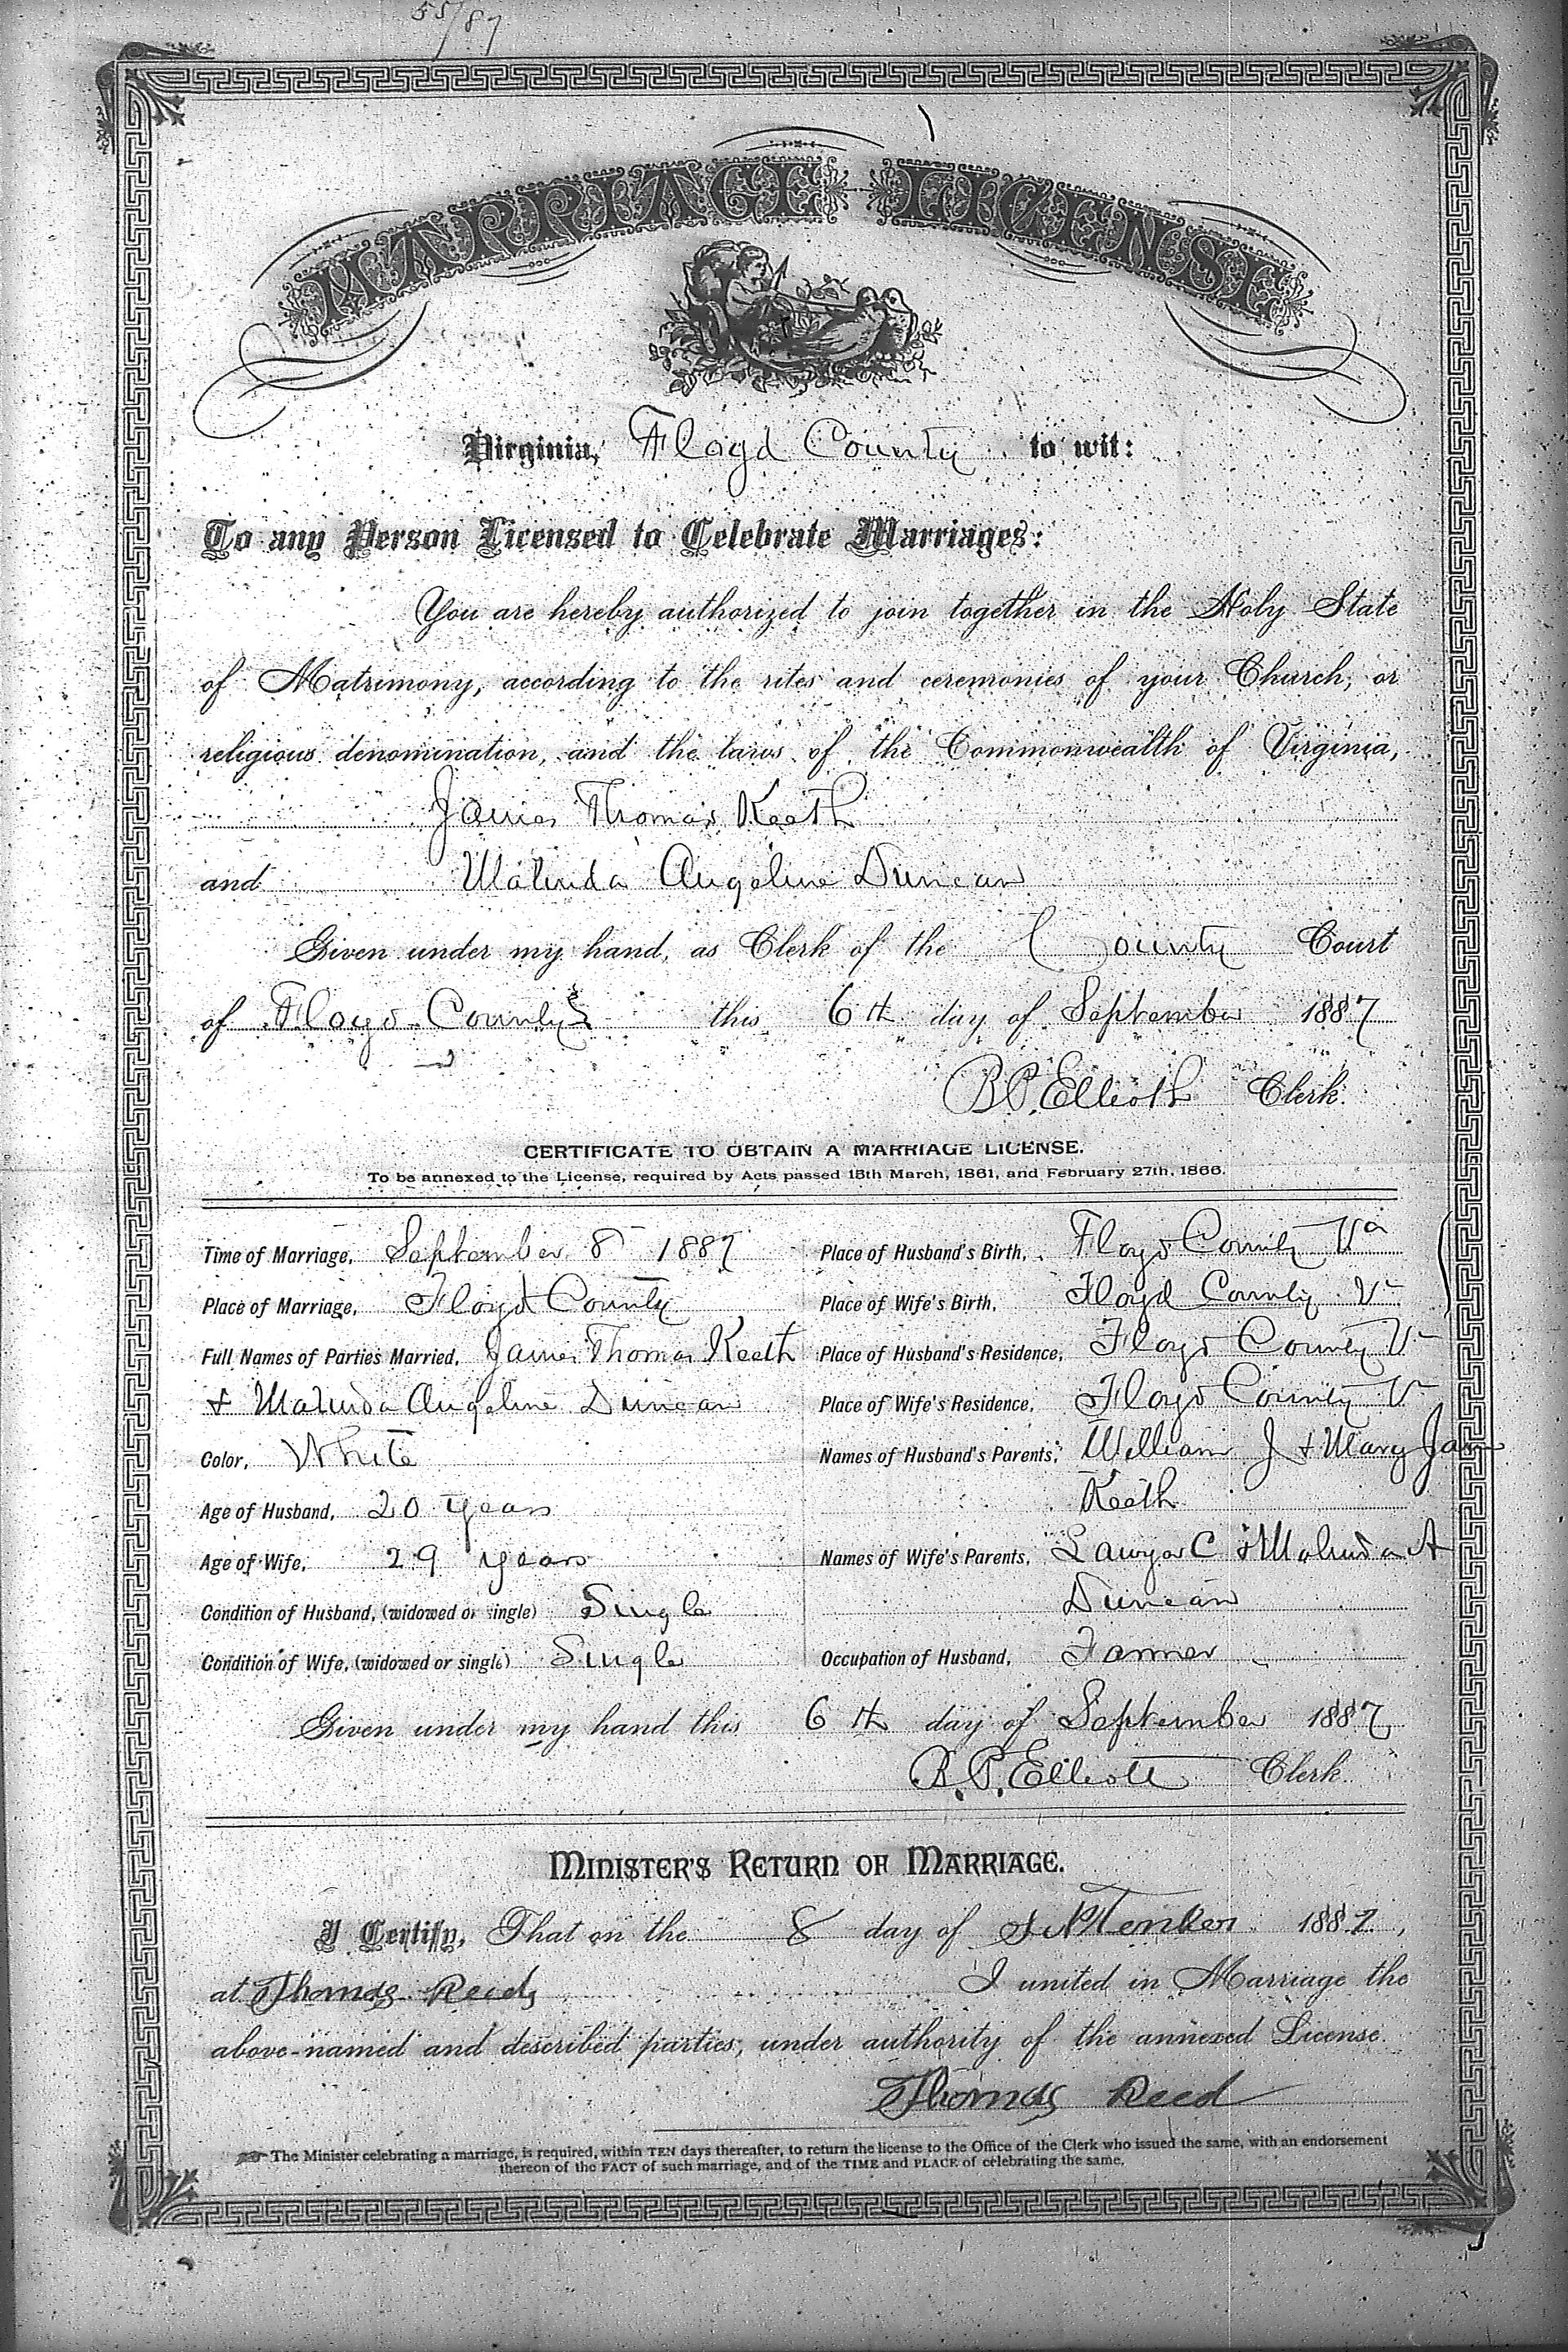 55/87
MARRIAGE LICENSE
Virginia, Floyd County to wit:
To any Person Licensed to Celebrate Marriages:
You are hereby authorized to join together in the Holy State
of Matrimony, according to the rites and ceremonies of your Church, or
religious denomination, and the laws of the Commonwealth of Virginia,
James Thomas Keeth
and Malinda Angeline Duncan
Given under my hand, as Clerk of the County Court
of Floyd County this 6th day of September 1887
Clerk.
CERTIFICATE TO OBTAIN A MARRIAGE LICENSE.
To be annexed to the License, required by Acts passed 15th March, 1861, and February 27th, 1866.
Time of Marriage, September 8 1887
Place of Marriage, Floyd County
Full Names of Parties Married, James Thomas Keeth
& Malinda Angeline Duncan
Color, White
Age of Husband, 20 years
Age of Wife, 29 years
Condition of Husband, (widowed or single) Single
Condition of Wife, (widowed or single) Single
Place of Husband's Birth, Floyd County Va
Place of Wife's Birth, Floyd County Va
Place of Husband's Residence, Floyd County Va
Place of Wife's Residence, Floyd County Va
Names of Husband's Parents, William J & Mary Jane
Keeth
Names of Wife's Parents, C & Malinda A
Duncan
Occupation of Husband, Farmer
Given under my hand this 6th day of September 1887
Elliott Clerk.
MINISTER'S RETURN OF MARRIAGE.
I Certify, That on the 8 day of 1887,
at Thomas Reeds I united in Marriage the
above-named and described parties, under authority of the annexed License.
Thomas Reed
The Minister celebrating a marriage, is required, within TEN days thereafter, to return the license to the Office of the Clerk who issued the same, with an endorsement
thereon of the FACT of such marriage, and of the TIME and PLACE of celebrating the same.